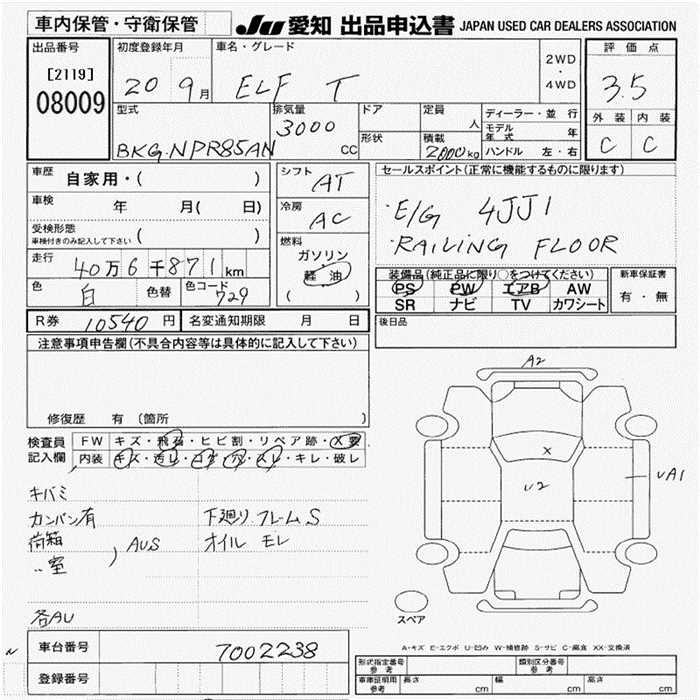 車内保管・守衛保管
JU 愛知 出品申込書 JAPAN USED CAR DEALERS ASSOCIATION
出品番号
[2119]
08009
初度登録年月
20 9月
車名・グレード
ELF T
2WD
・
4WD
評価点
3.5
外装 内装
C C
型式
BKG-NPR85AN
排気量
3000
cc
ドア
形状
定員
人
積載
2000kg
ディーラー・並行
モデル年式 年
ハンドル 左・右
車歴 自家用・( )
車検 年 月( 日)
受検形態
車検付きのみ記入して下さい ( )
走行 40万6千871km
色 白 色替 色コード 729
シフト
AT
冷房
AC
燃料
ガソリン
軽油
( )
セールスポイント(正常に機能するものに限ります)
・E/G 4JJ1
・RAILING FLOOR
装備品(純正品に限り○をつけてください)
PS PW エアB AW
SR ナビ TV カワシート
新車保証書
有・無
R券 10540円 名変通知期限 月 日
後日品
注意事項申告欄(不具合内容等は具体的に記入して下さい)
修復歴 有 (箇所 )
検査員
記入欄
FW キズ・飛石・ヒビ割・リペア跡・X要
内装 キズ・汚レ・コゲ・穴・スレ・キレ・破レ
キバミ
カンバン有
荷箱
〃室
AUS
下廻リ フレームS
オイル モレ
各AU
A2
X
U2
UA1
スペア
A-キズ E-エクボ U-凹み W-補修跡 S-サビ C-腐食 XX-交換済
車台番号 7002238
登録番号
形式指定番号
参考
類別区分番号
参考
車庫証明用
参考
長さ cm 幅 cm 高さ cm